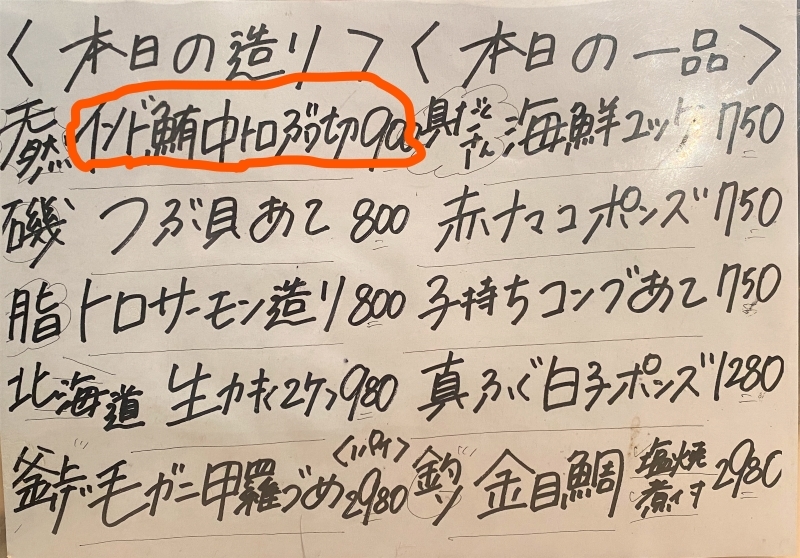 〈本日の造り〉
天然 インド鮪中トロブツ切 900
磯 つぶ貝あて 800
脂 トロサーモン造り 800
北海道 生カキ(2ケ) 980
釜上げ 毛ガニ甲羅づめ 〈1パイ〉 2980
〈本日の一品〉
具だくさん 海鮮ユッケ 750
赤ナマコポンズ 750
子持ちコンブあて 750
真ふぐ白子ポンズ 1280
釣り 金目鯛 塩焼 煮付 2980